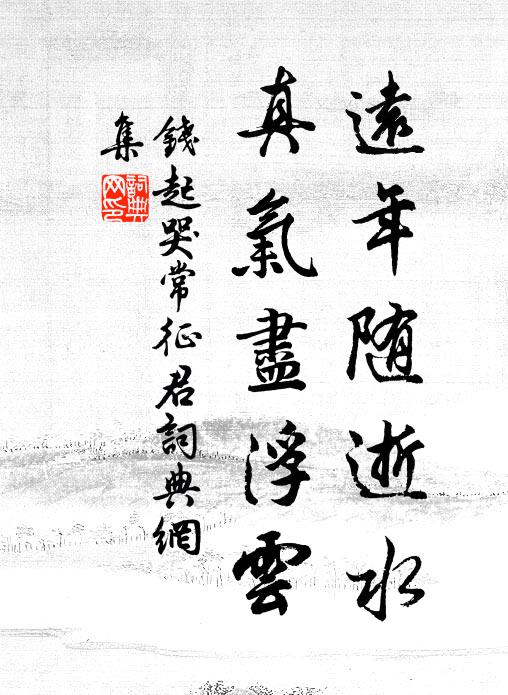 遠年随逝水
真氣盡浮雲
錢起哭常征君詞典網
集
詞典网印